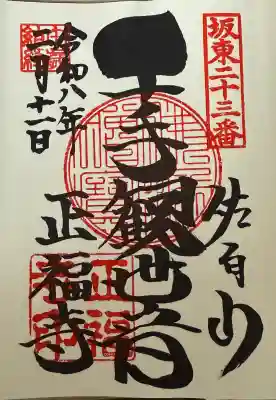 坂東二十三番
佐白山
千手観世音
正福寺
令和八年
二月十一日
正福寺印